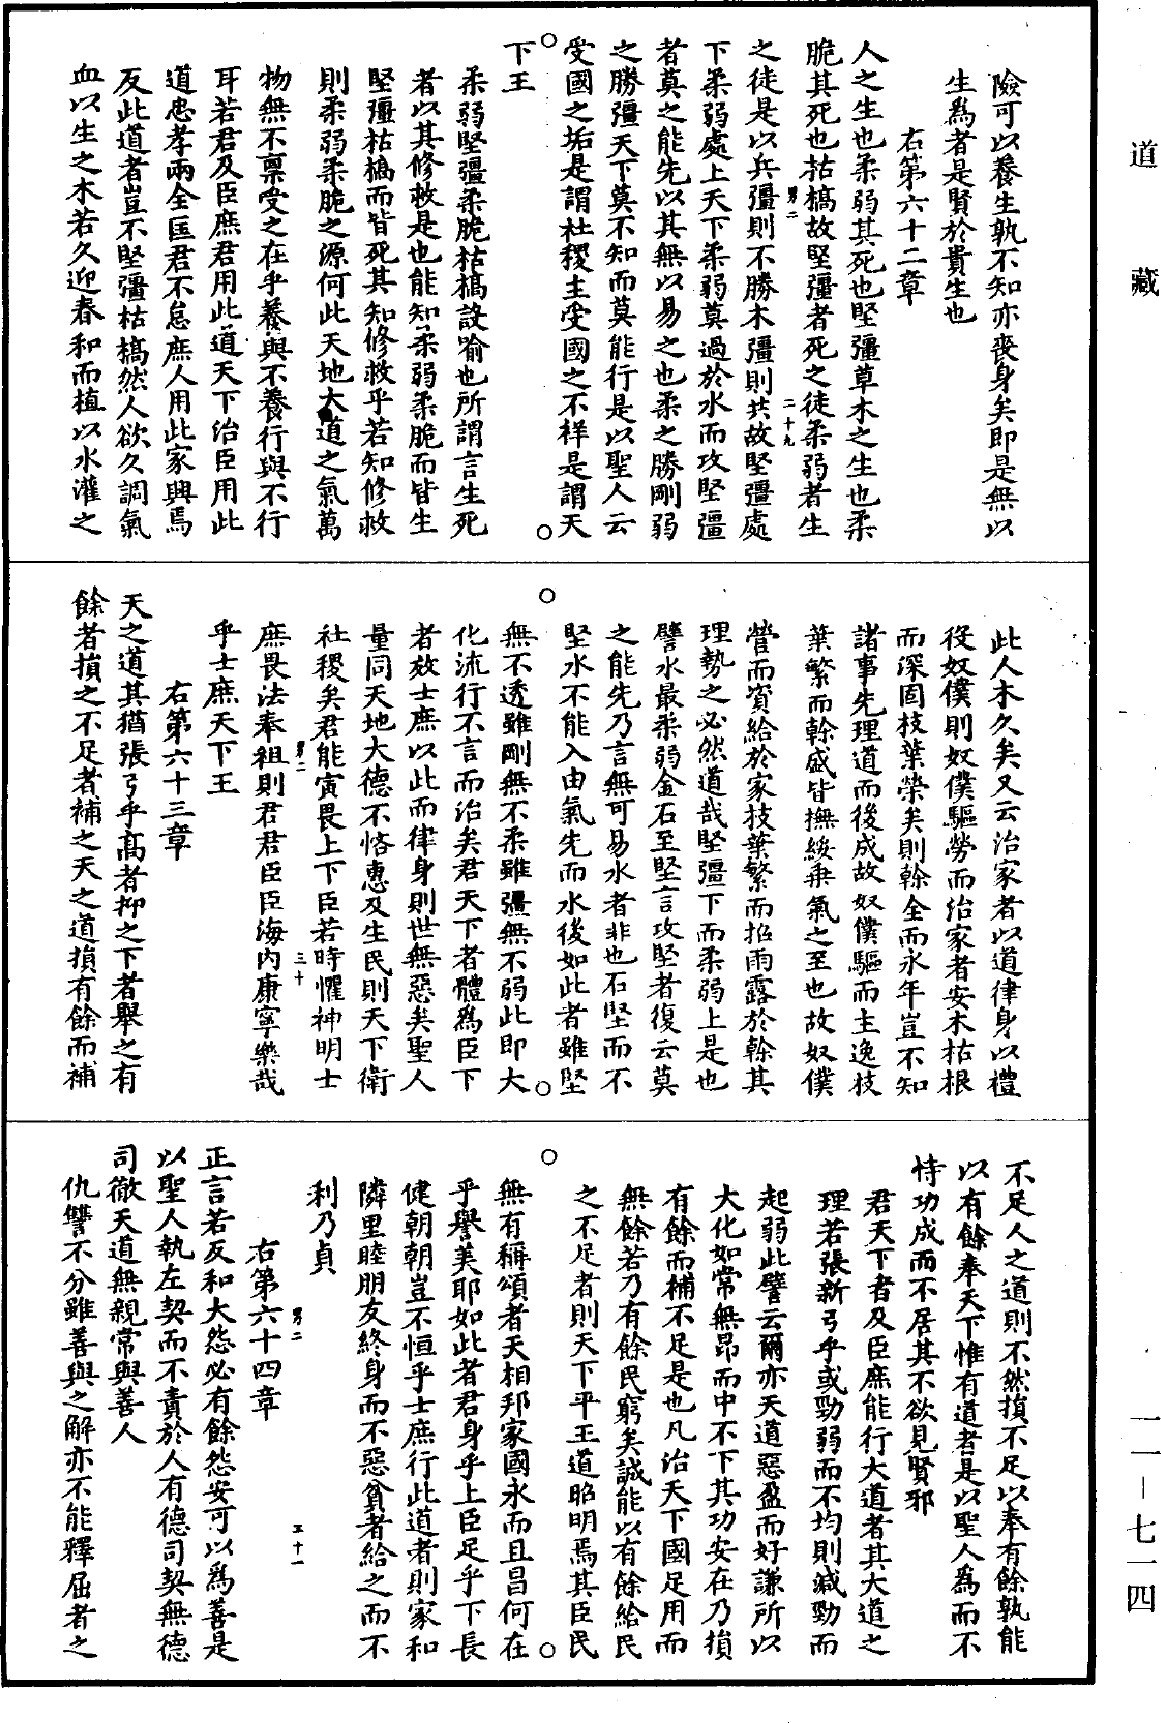 道藏
險可以養生孰不知亦喪身矣即是無以
生爲者是賢於貴生也
右第六十二章
人之生也柔弱其死也堅彊草木之生也柔
脆其死也枯槁故堅彊者死之徒柔弱者生
男二
二十九
之徒是以兵彊則不勝木彊則共故堅彊處
下柔弱處上天下柔弱莫過於水而攻堅彊
者莫之能先以其無以易之也柔之勝剛弱
之勝彊天下莫不知而莫能行是以聖人云
受國之垢是謂社稷主受國之不祥是謂天
下王
柔弱堅彊柔脆枯槁設喻也所謂言生死
者以其修救是也能知柔弱柔脆而皆生
堅彊枯槁而皆死其知修救乎若知修救
則柔弱柔脆之源何此天地大道之氣萬
物無不稟受之在乎養與不養行與不行
耳若君及臣庶君用此道天下治臣用此
道忠孝兩全匡君不怠庶人用此家興焉
反此道者豈不堅彊枯槁然人欲久調氣
血以生之木若久迎春和而植以水灌之
此人木久矣又云治家者以道律身以禮
役奴僕則奴僕驅勞而治家者安木枯根
而深固枝葉榮矣則榦全而永年豈不知
諸事先理道而後成故奴僕驅而主逸枝
葉繁而榦盛皆撫綏乘氣之至也故奴僕
營而資給於家枝葉繁而招雨露於榦其
理勢之必然道哉堅彊下而柔弱上是也
譬水最柔弱金石至堅言攻堅者復云莫
之能先乃言無可易水者非也石堅而不
堅水不能入由氣先而水後如此者雖堅
無不透雖剛無不柔雖彊無不弱此即大
化流行不言而治矣君天下者體爲臣下
者放士庶以此而律身則世無惡矣聖人
量同天地大德不悋惠及生民則天下衛
社稷矣君能寅畏上下臣若時懼神明士
男二
三十
庶畏法奉祖則君君臣臣海内康寧樂哉
乎士庶天下王
右第六十三章
天之道其猶張弓乎高者抑之下者舉之有
餘者損之不足者補之天之道損有餘而補
不足人之道則不然損不足以奉有餘孰能
以有餘奉天下惟有道者是以聖人爲而不
恃功成而不居其不欲見賢邪
君天下者及臣庶能行大道者其大道之
理若張新弓乎或勁弱而不均則減勁而
起弱此譬云爾亦天道惡盈而好謙所以
大化如常無昂而中不下其功安在乃損
有餘而補不足是也凡治天下國足用而
無餘若乃有餘民窮矣誠能以有餘給民
之不足者則天下平王道昭明焉其臣民
無有稱頌者天相邦家國永而且昌何在
乎譽美耶如此者君身乎上臣足乎下長
健朝朝豈不恒乎士庶行此道者則家和
隣里睦朋友終身而不惡貧者給之而不
利乃貞
男二
三十一
右第六十四章
正言若反和大怨必有餘怨安可以爲善是
以聖人執左契而不責於人有德司契無德
司徹天道無親常與善人
仇讐不分雖善與之解亦不能釋屈者之
一一—七一四